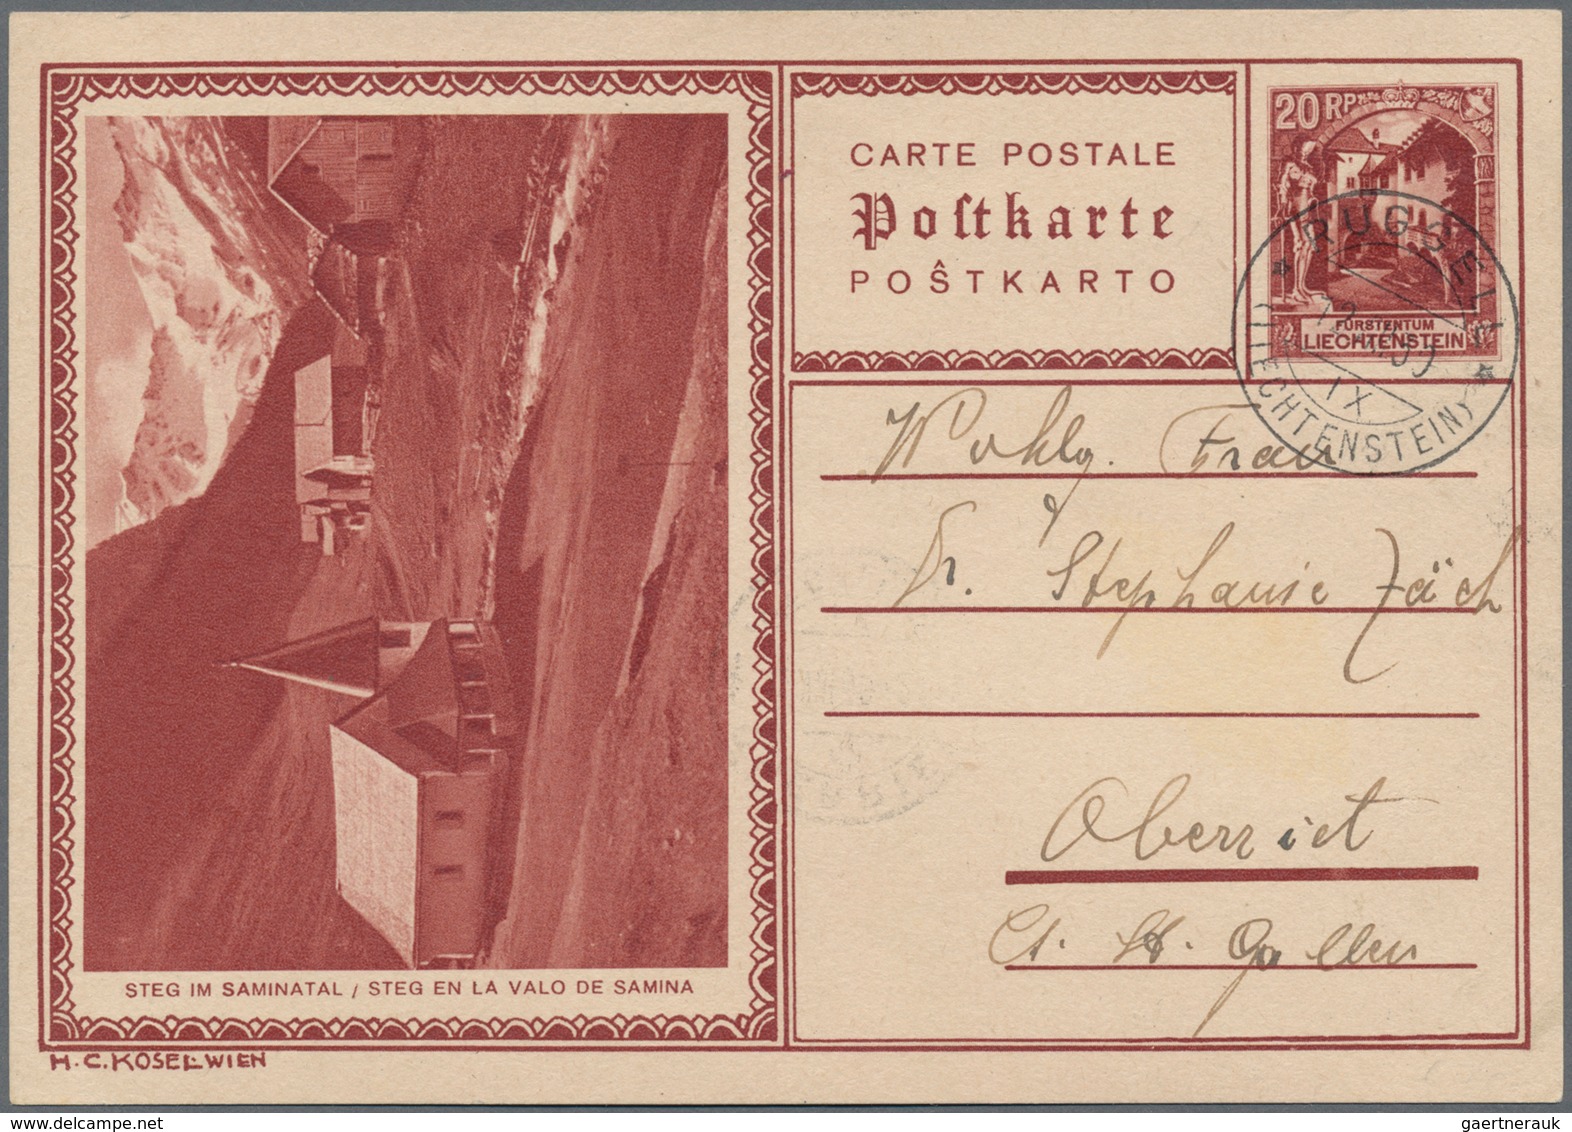 CARTE POSTALE
Postkarte
POŜTKARTO
20 RP
FÜRSTENTUM
LIECHTENSTEIN
RUGGELL
IX
(LIECHTENSTEIN)
Wohlg. Frau
Dr. Stephanie Zäch
Oberriet
Ct. St. Gallen
STEG IM SAMINATAL / STEG EN LA VALO DE SAMINA
H.C.KOSEL-WIEN
delcampe.net
gaertnerauk